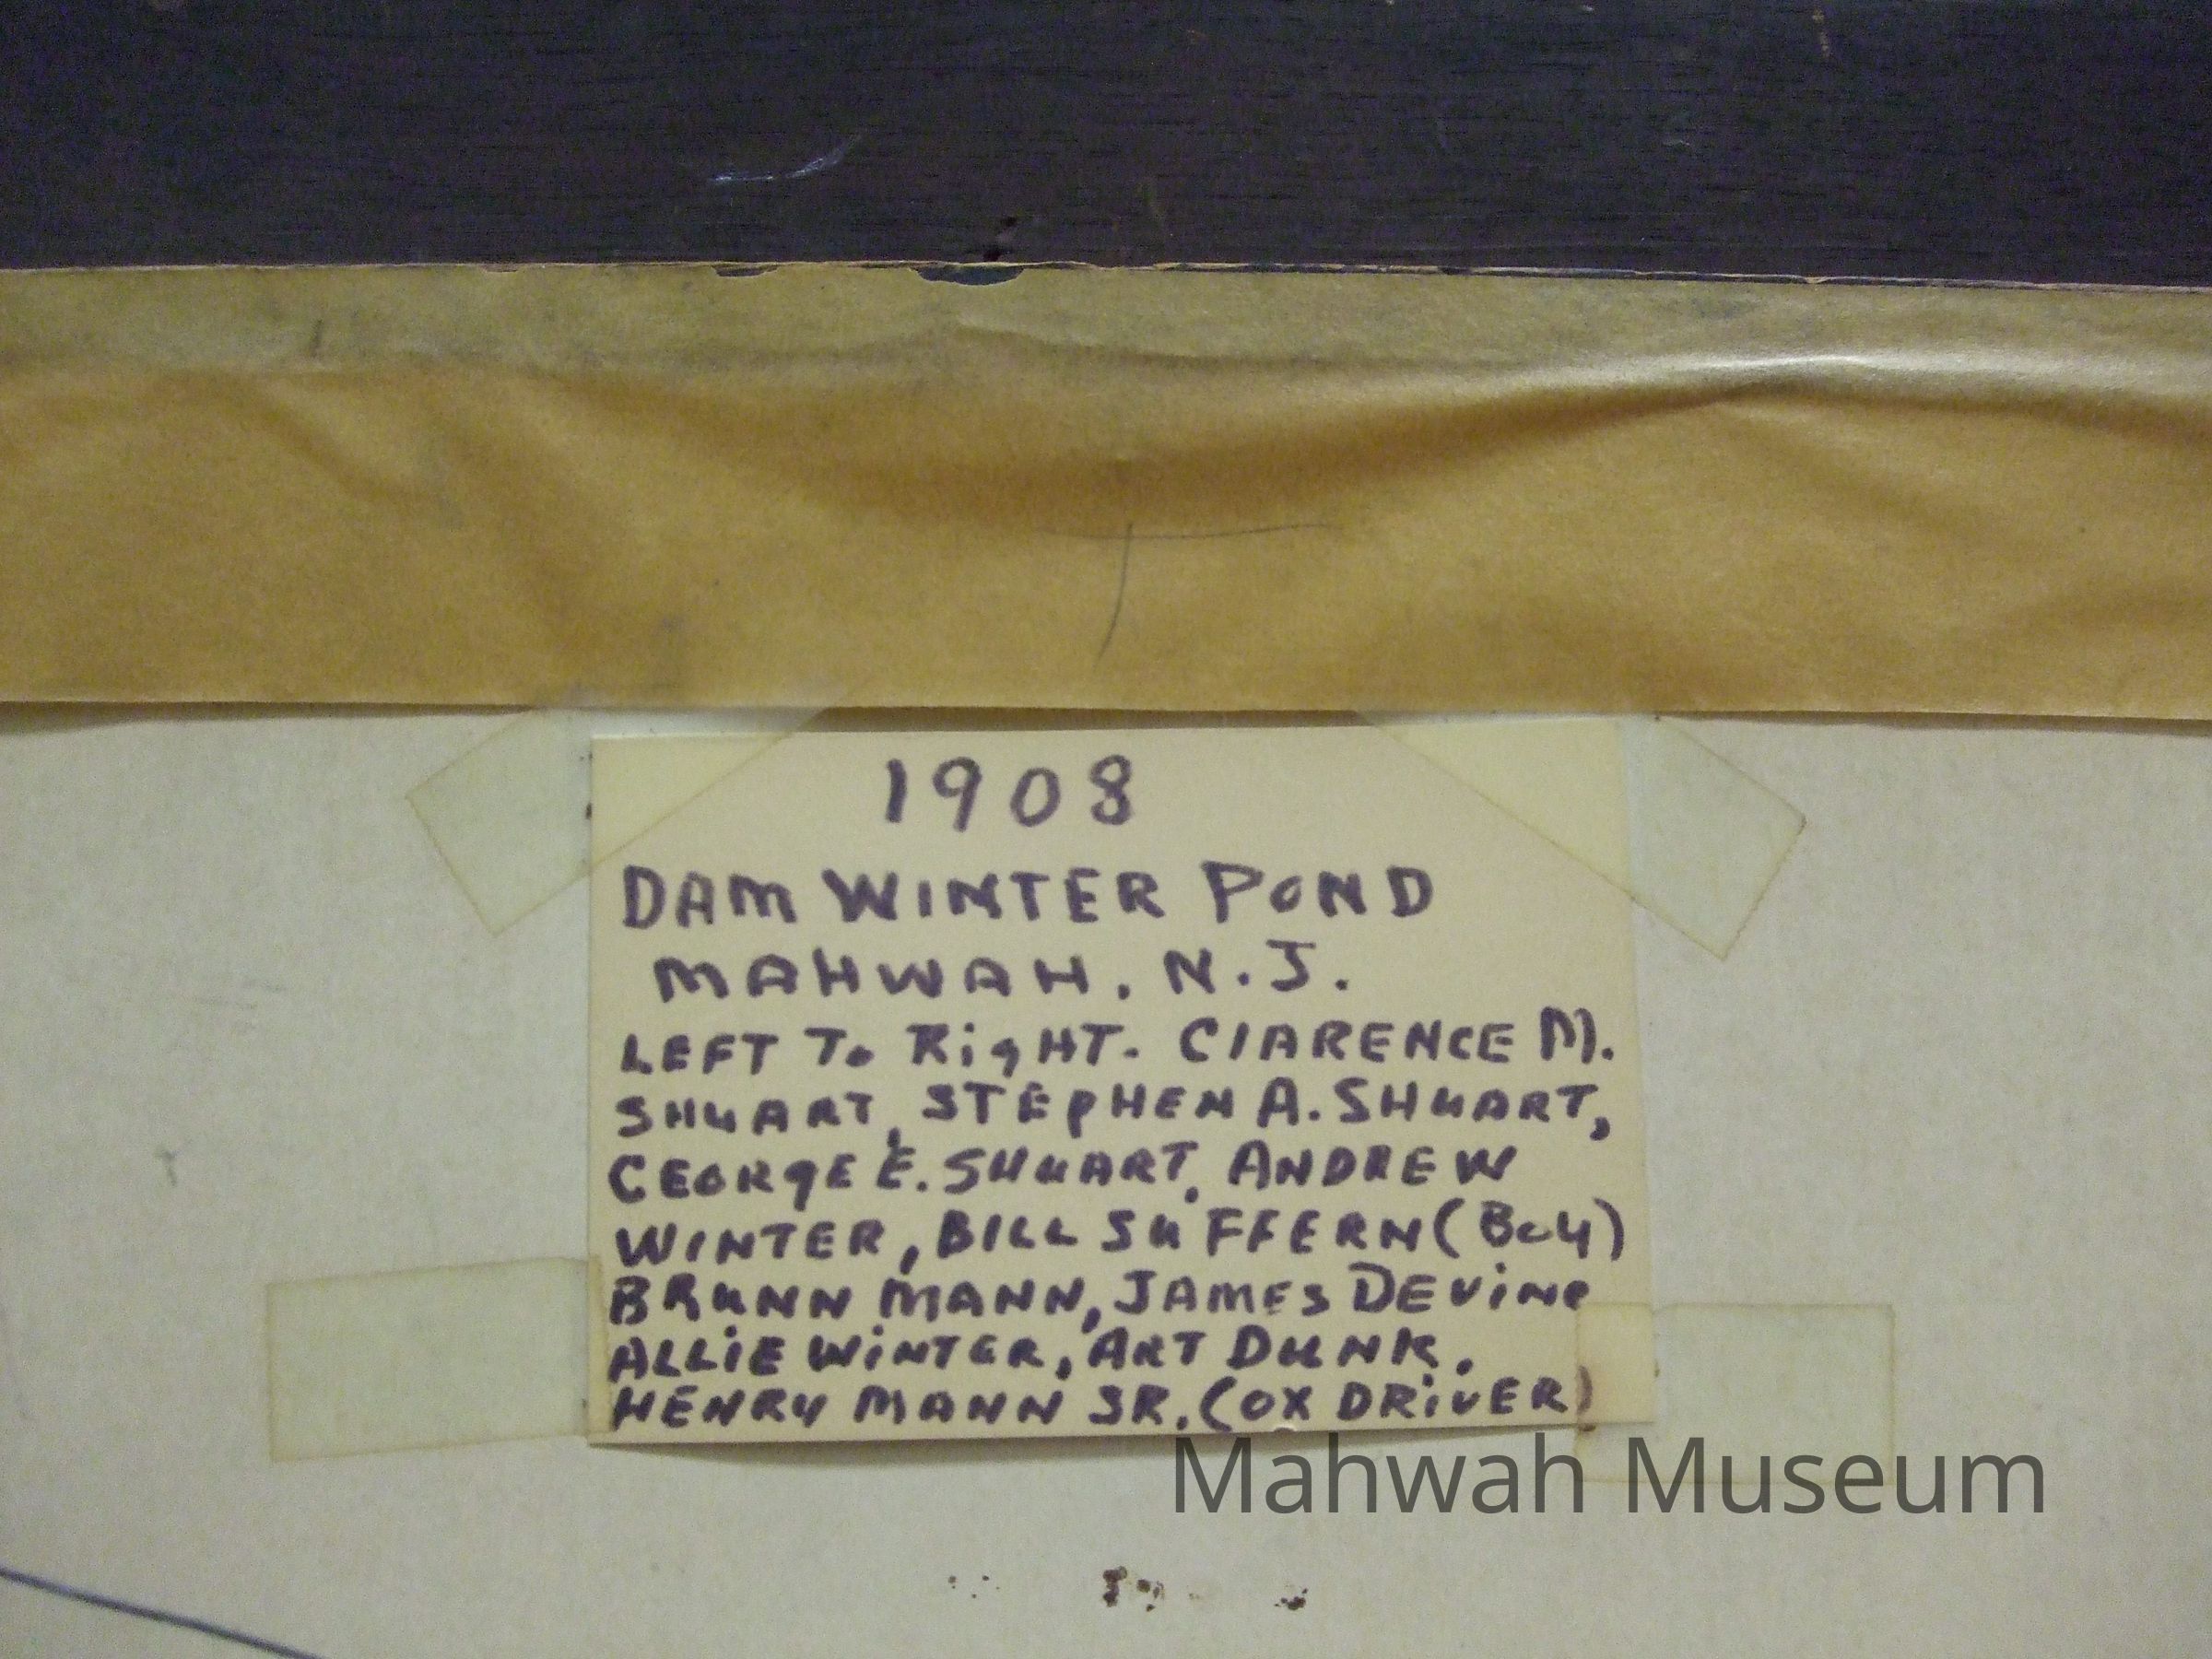 1908
DAM WINTER POND
MAHWAH. N.J.
LEFT To RigHT. ClARENCE M.
SHuART, STEpHEN A. SHuART,
GEORgE E. SHuART, ANDREW
WINTER, BILL SuFFERN (Boy)
BRuNN MANN, JAMES DEViNe
ALLiE WiNTER, ART DuNK.
HENRy MANN SR. (OX DRiVER)
Mahwah Museum